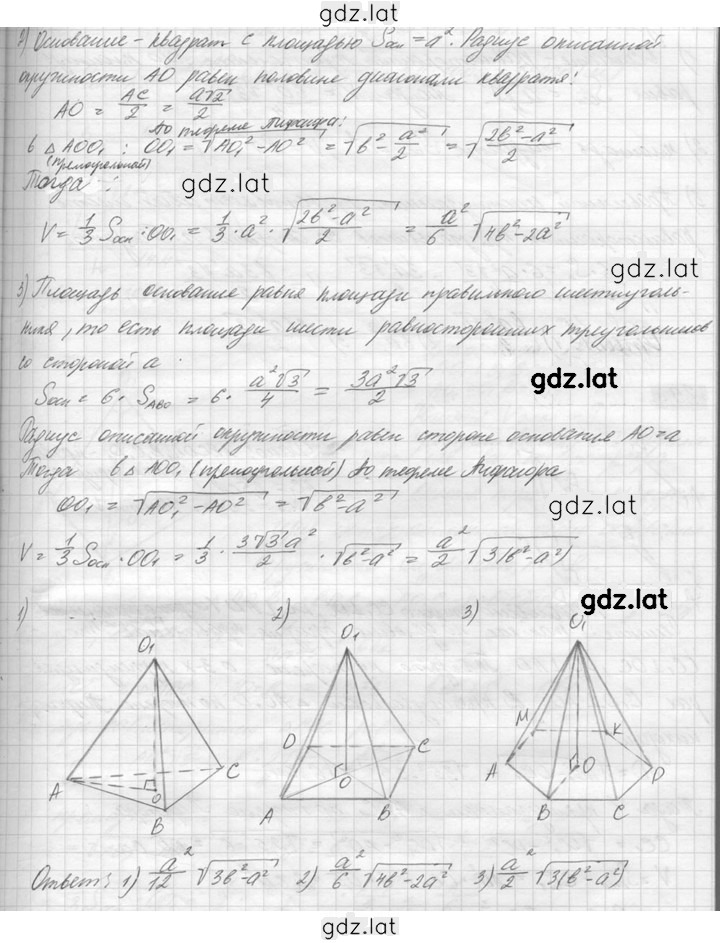 gdz.lat
2) Основание - квадрат с площадью Sосн = a². Радиус описанной
окружности AO равен половине диагонали квадрата:
AO = AC/2 = a√2/2
По теореме Пифагора:
в △AOO₁ : OO₁ = √(AO₁² - AO²) = √(b² - a²/2) = √((2b² - a²)/2)
(прямоугольной)
Тогда :
gdz.lat
V = 1/3 Sосн · OO₁ = 1/3 · a² · √((2b² - a²)/2) = a²/6 √(4b² - 2a²)
gdz.lat
3) Площадь основание равна площади правильного шестиуголь-
ника, то есть площади шести равносторонних треугольников
со стороной a.
gdz.lat
Sосн = 6 · SABO = 6 · a²√3/4 = 3a²√3/2
Радиус описанной окружности равен стороне основания AO = a
Тогда в △AOO₁ (прямоугольной) по теореме Пифагора
OO₁ = √(AO₁² - AO²) = √(b² - a²)
gdz.lat
V = 1/3 Sосн · OO₁ = 1/3 · 3√3a²/2 · √(b² - a²) = a²/2 √3(b² - a²)
gdz.lat
1) 2) 3)
O₁ O₁ O₁
M K
D C
A C O A O D
O
B A B B C
gdz.lat
Ответ: 1) a²/12 √(3b² - a²) 2) a²/6 √(4b² - 2a²) 3) a²/2 √3(b² - a²)
gdz.lat